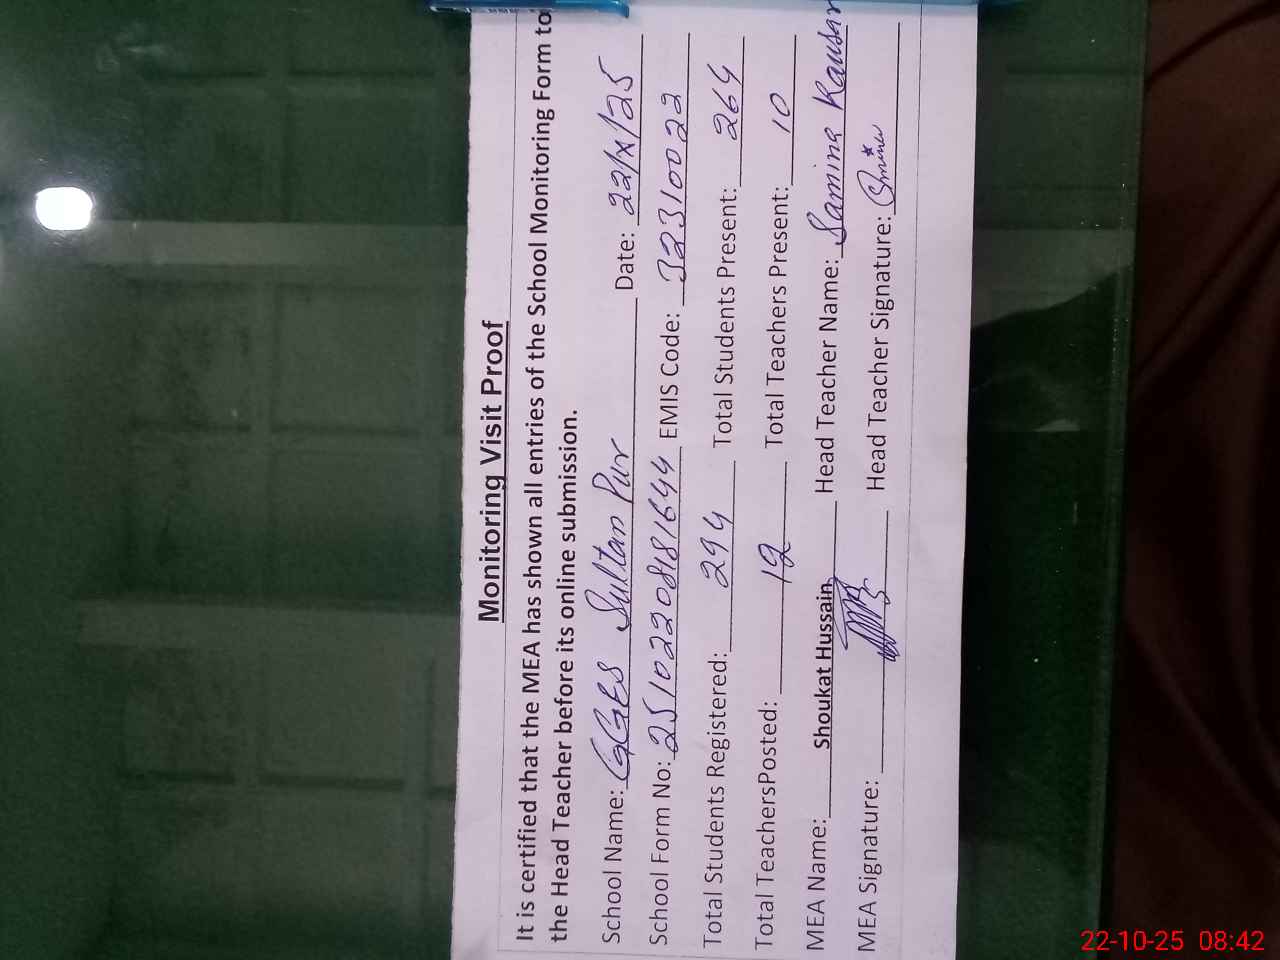 Monitoring Visit Proof
It is certified that the MEA has shown all entries of the School Monitoring Form to
the Head Teacher before its online submission.
School Name: GGES Sultan Pur Date: 22/X/25
School Form No: 25102208181644 EMIS Code: 32310022
Total Students Registered: 294 Total Students Present: 264
Total TeachersPosted: 12 Total Teachers Present: 10
MEA Name: Shoukat Hussain Head Teacher Name: Samina Kausar
MEA Signature: Head Teacher Signature:
22-10-25 08:42